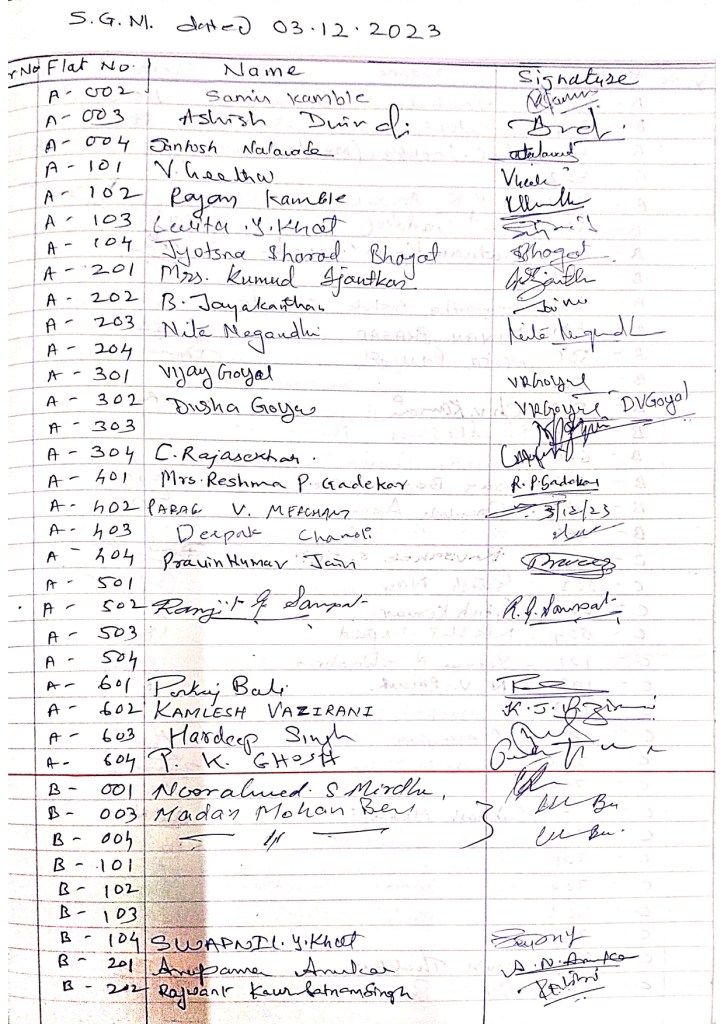 S.G.M. dated 03.12.2023
Sr No Flat No. Name Signature
A - 002 Samir Kamble
A - 003 Ashish
A - 004 Santosh Nalavade
A - 101 V. Geetha
A - 102 Rajan Kamble
A - 103 Lalita .Y. Khot
A - 104 Jyotsna Sharad Bhagat Bhagat
A - 201 Mrs. Kumud Ajantkar
A - 202 B. Jayakanthan
A - 203 Nita Negandhi
A - 204
A - 301 Vijay Goyal VRGoyal
A - 302 Disha Goyal VRGoyal DVGoyal
A - 303
A - 304 C. Rajasekhar.
A - 401 Mrs. Reshma P. Gadekar R.P. Gadekar
A - 402 PARAG V. MERCHANT 3/12/23
A - 403 Deepak
A - 404 Pravinkumar Jain
A - 501
A - 502 Ranjit G Sampat R.G. Sampat
A - 503
A - 504
A - 601 Pankaj Bali
A - 602 KAMLESH VAZIRANI K.J.
A - 603 Hardeep Singh
A - 604 P. K. GHOSH
B - 001 Noorahmed. S Mirdhe
B - 003 Madan Mohan
B - 004 — 〃 —
B - 101
B - 102
B - 103
B - 104 SWAPNIL. Y. Khot
B - 201 Anupama
B - 202 Rajwant Kaur Satnam Singh